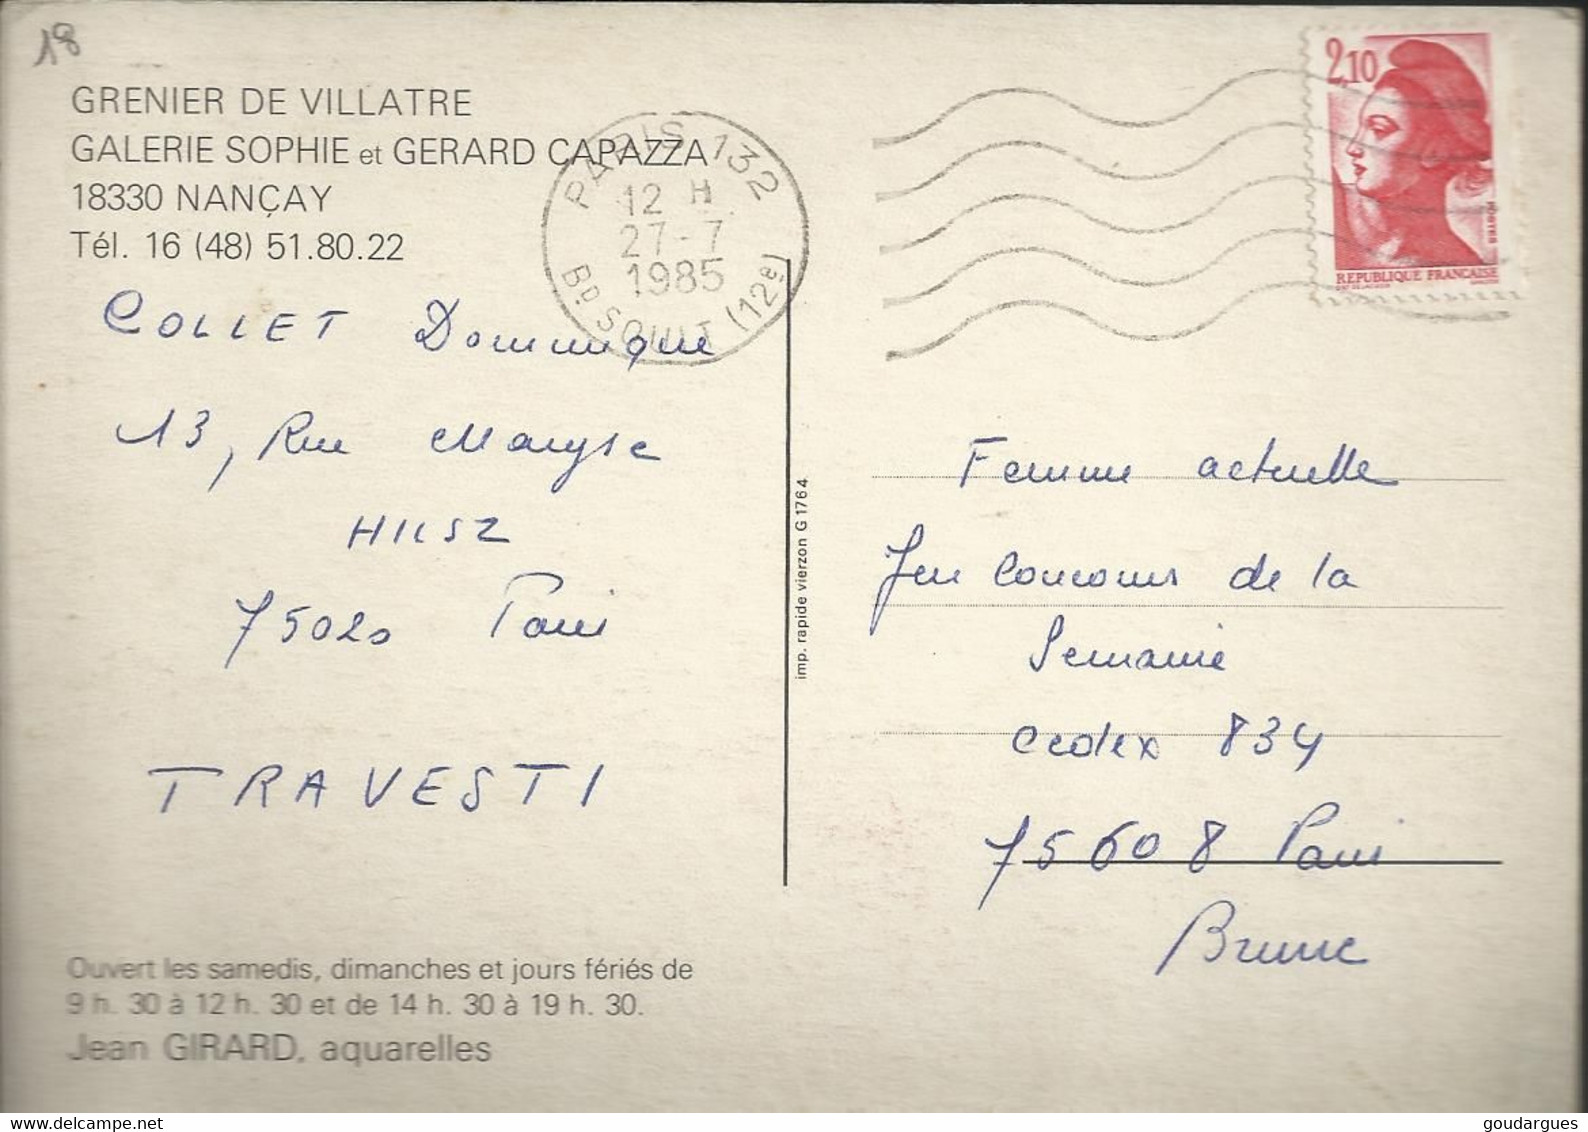 18
GRENIER DE VILLATRE
GALERIE SOPHIE et GERARD CAPAZZA
18330 NANÇAY
Tél. 16 (48) 51.80.22
PARIS 132
12 H
27-7
1985
BD SOULT (12e)
2,10
POSTES
REPUBLIQUE FRANÇAISE
COLLET Dominique
13, Rue Maryse
HILSZ
75020 Paris
TRAVESTI
imp. rapide vierzon G 1764
Femme actuelle
Jeu Concours de la
Semaine
Cedex 834
75608 Paris
Brune
Ouvert les samedis, dimanches et jours fériés de
9 h. 30 à 12 h. 30 et de 14 h. 30 à 19 h. 30.
Jean GIRARD, aquarelles
goudargues@delcampe.net